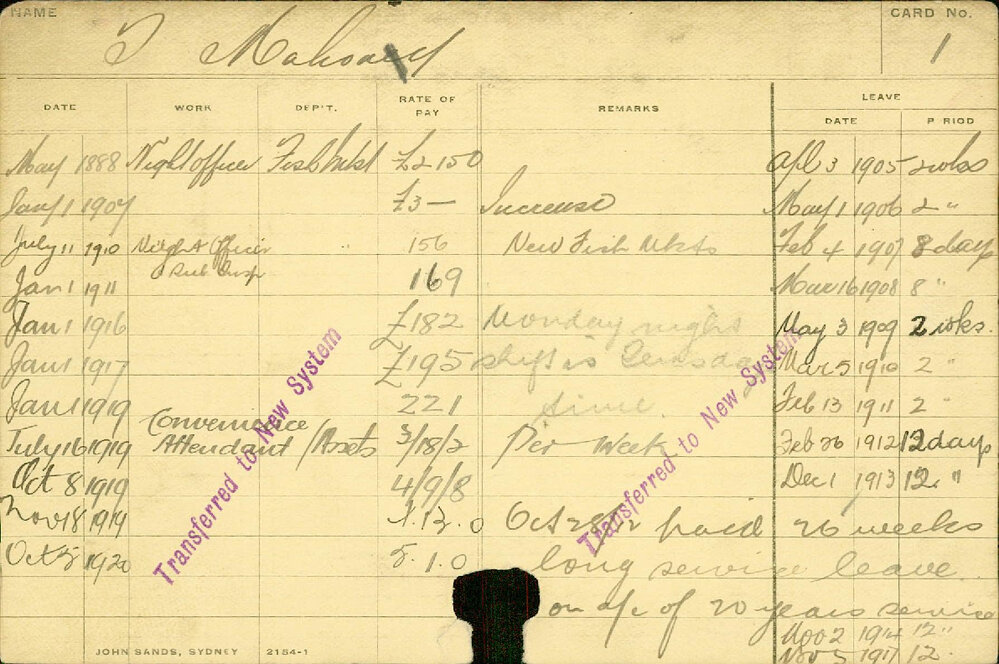 NAME CARD No.
T Mahoney 1
DATE WORK DEP'T. RATE OF PAY REMARKS LEAVE
DATE PERIOD
May 1888 Night officer Fish Mkt £2 15 0 Apl 3 1905 2 wks
Jany 1 1907 £3 — Increase May 1 1906 2 "
July 11 1910 Night Officer " 156 New Fish Mkts Feb 4 1907 8 days
Jan 1 1911 169 Mar 16 1908 8 "
Jan 1 1916 £182 Monday night May 3 1909 2 wks.
Jan 1 1917 £195 shift is Mar 5 1910 2 "
Jan 1 1919 221 time. Feb 13 1911 2 "
July 16 1919 Convenience Attendant /Assets 3/18/2 Per Week Feb 26 1912 12 days
Oct 8 1919 4/9/8 Dec 1 1913 12 "
Nov 18 1919 12. 0 Oct paid 26 weeks
Oct 5 1920 5. 1. 0 long service leave.
on a/c of 20 years service
Nov 2 1914 12 "
Nov 5 1917 12.
Transferred to New System
Transferred to New System
JOHN SANDS, SYDNEY 2154-1